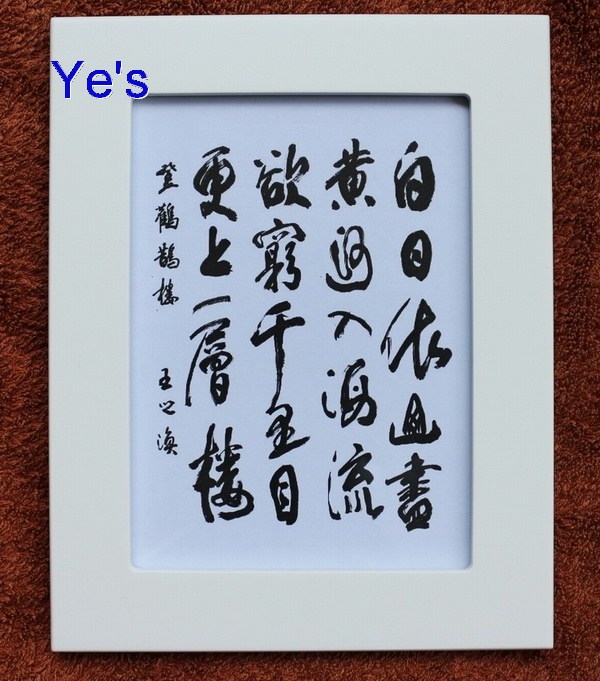 Ye's
白日依山盡
黄河入海流
欲窮千里目
更上一層樓
登鸛鵲樓 王之渙